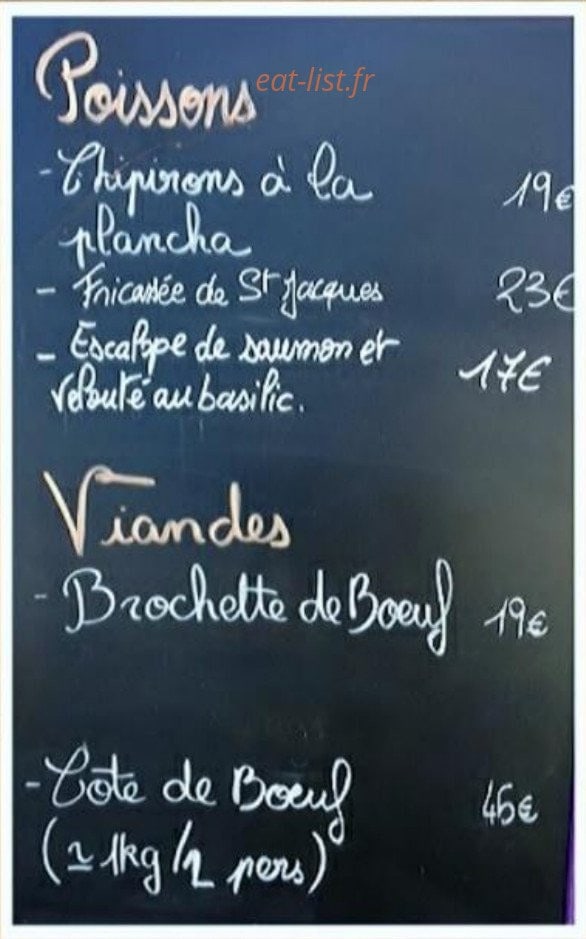 Poissons eat-list.fr
- Chipirons à la 19€
plancha
- Fricassée de St Jacques 23€
- Escalope de saumon et 17€
velouté au basilic.
Viandes
- Brochette de Boeuf 19€
- Cote de Boeuf 46€
(≃ 1kg/2 pers)